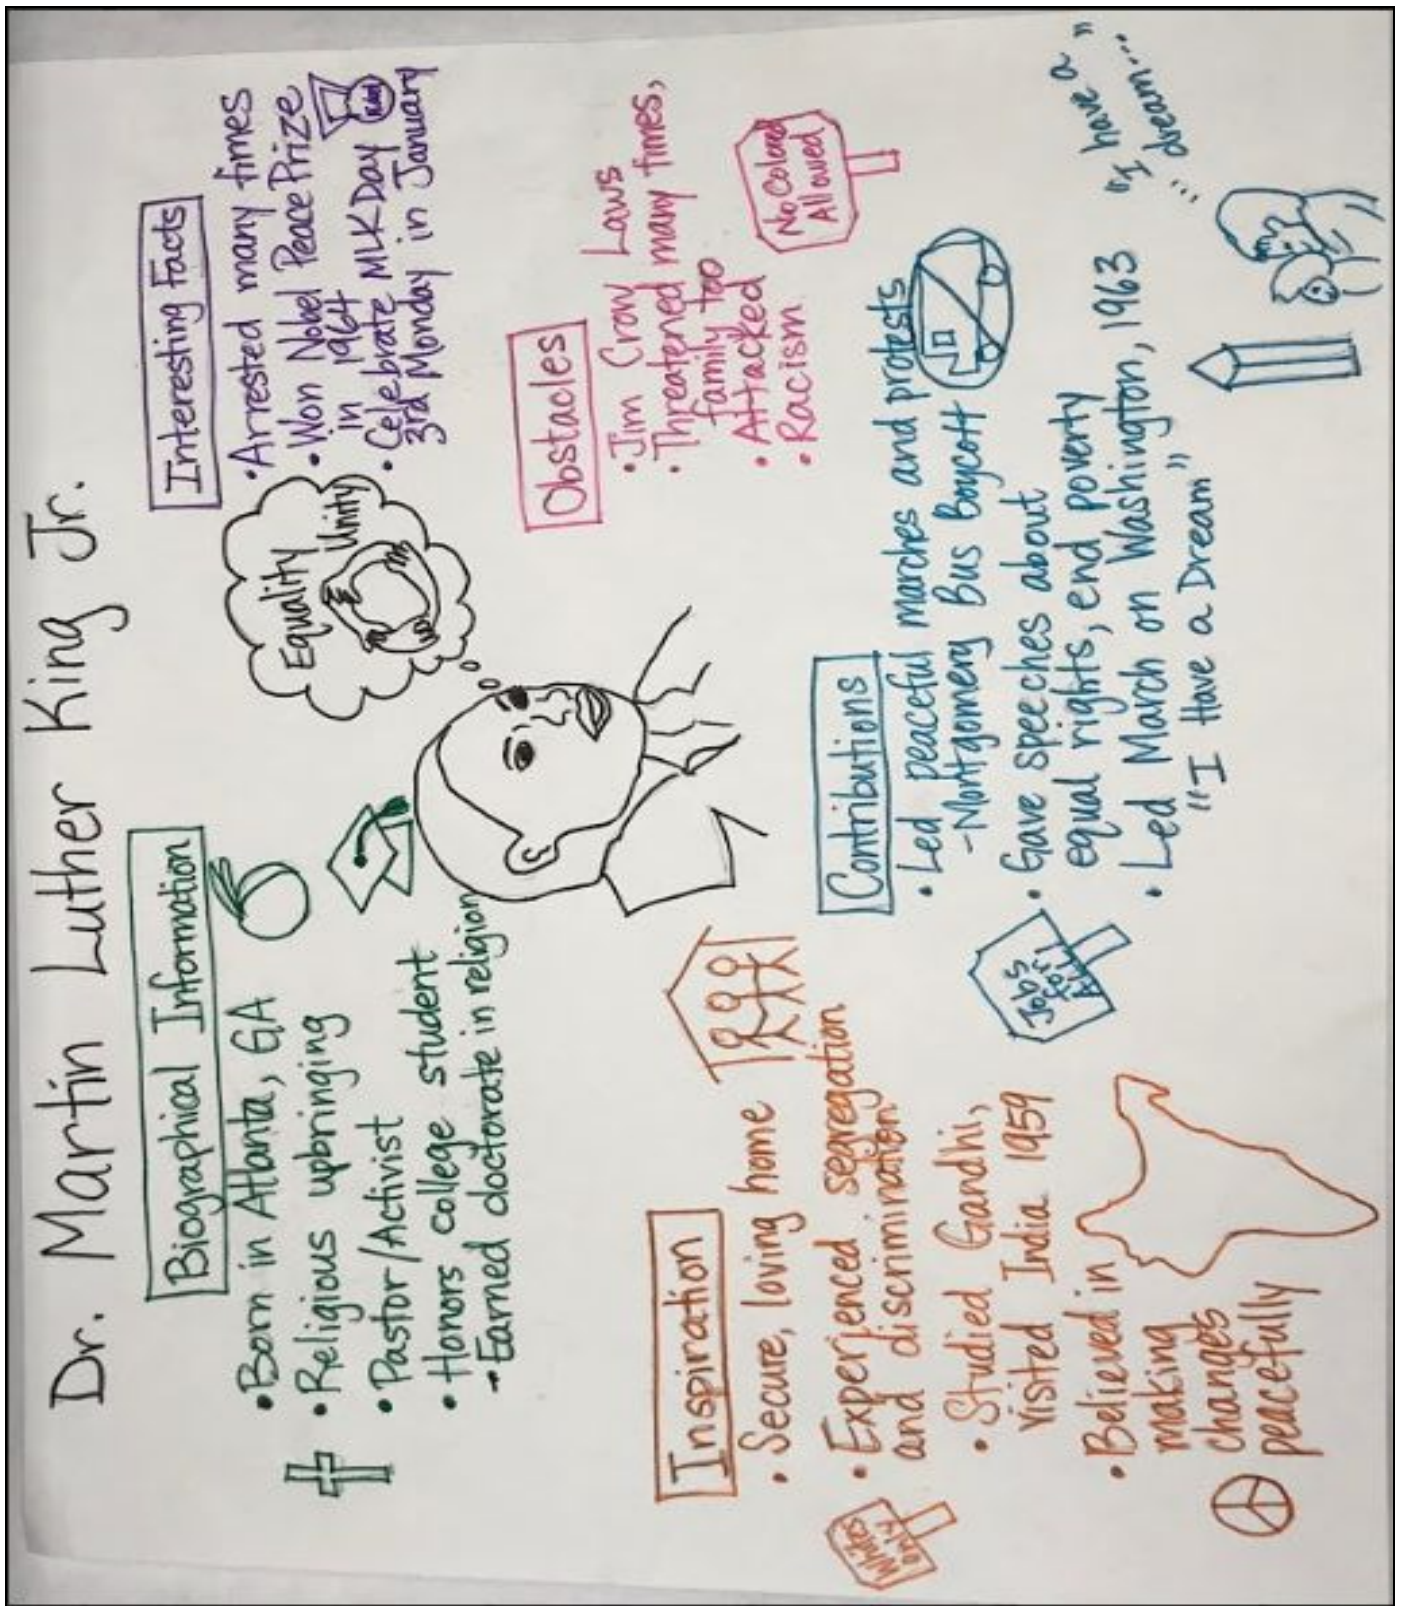 Dr. Martin Luther King Jr.
Biographical Information
• Born in Atlanta, GA
• Religious upbringing
• Pastor/Activist
• Honors college student
→ Earned doctorate in religion
Equality
Unity
Interesting Facts
• Arrested many times
• Won Nobel Peace Prize
in 1964
• Celebrate MLK Day
3rd Monday in January
Nobel
Obstacles
• Jim Crow Laws
• Threatened many times,
family too
• Attacked
• Racism
No Colored
Allowed
Inspiration
• Secure, loving home
• Experienced segregation
and discrimination
• Studied Gandhi,
visited India 1959
• Believed in
making
changes
peacefully
Whites
only
Contributions
• Led peaceful marches and protests
- Montgomery Bus Boycott
• Gave speeches about
equal rights, end poverty
• Led March on Washington, 1963
"I Have a Dream"
Jobs
for
All!
"I have a"
... dream...